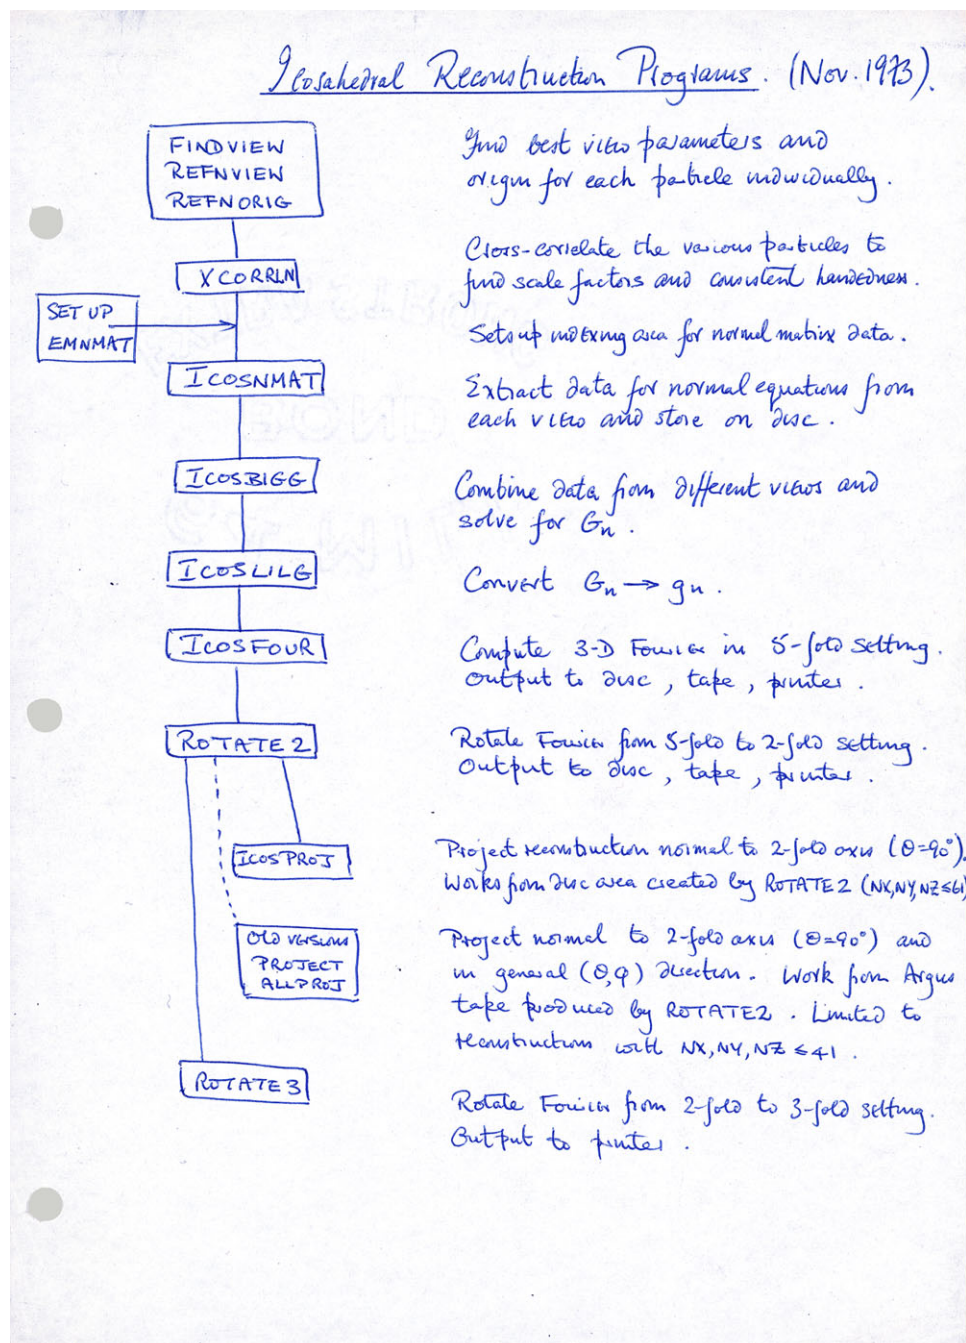 Icosahedral Reconstruction Programs. (Nov. 1973).
FINDVIEW
REFNVIEW
REFNORIG
Find best view parameters and
origin for each particle individually.
XCORRLN
Cross-correlate the various particles to
find scale factors and consistent handedness.
SET UP
EMNMAT
Sets up indexing area for normal matrix data.
ICOSNMAT
Extract data for normal equations from
each view and store on disc.
ICOSBIGG
Combine data from different views and
solve for Gn.
ICOSLILG
Convert Gn → gn.
ICOSFOUR
Compute 3-D Fourier in 5-fold setting.
Output to disc, tape, printer.
ROTATE2
Rotate Fourier from 5-fold to 2-fold setting.
Output to disc, tape, printer.
ICOSPROJ
Project reconstruction normal to 2-fold axis (θ=90°).
Works from disc area created by ROTATE2 (NX,NY,NZ≤61)
OLD VERSIONS
PROJECT
ALLPROJ
Project normal to 2-fold axis (θ=90°) and
in general (θ,φ) direction. Work from Argus
tape produced by ROTATE2. Limited to
reconstructions with NX,NY,NZ ≤41.
ROTATE3
Rotate Fourier from 2-fold to 3-fold setting.
Output to printer.